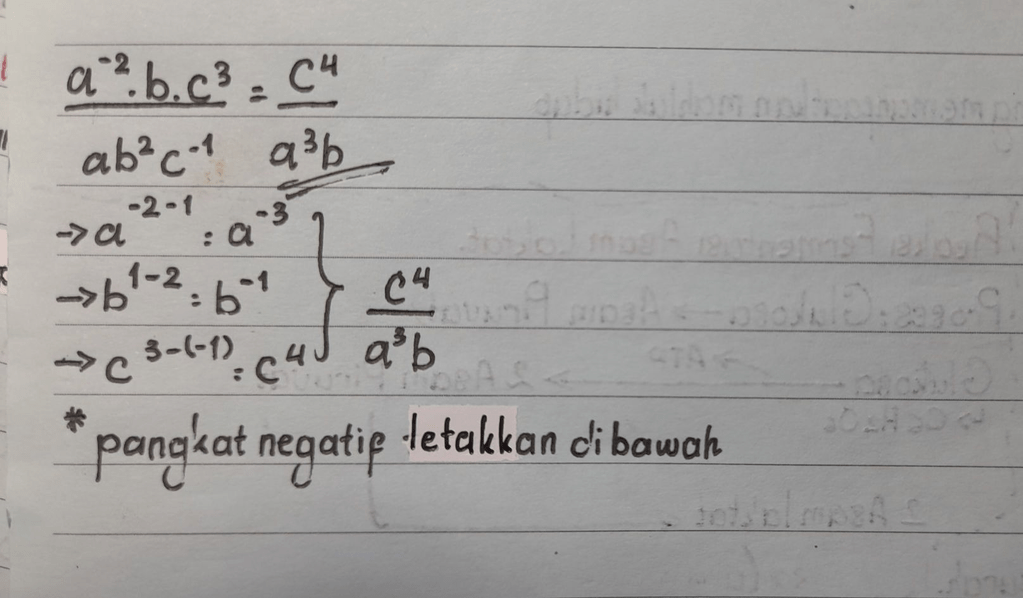 a⁻².b.c³ = c⁴
ab²c⁻¹ a³b
→ a⁻²⁻¹ : a⁻³
→ b¹⁻² : b⁻¹
→ c³⁻⁽⁻¹⁾ : c⁴
c⁴
a³b
* pangkat negatif letakkan dibawah